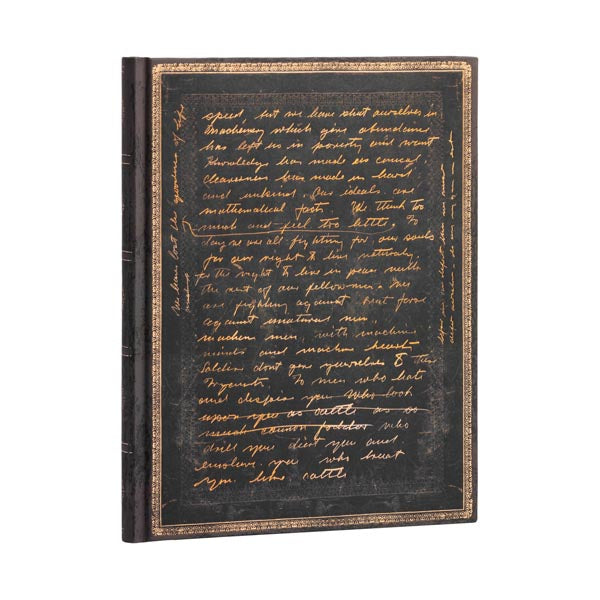 speed, but we have shut ourselves in
Machinery which gives abundance
has left us in poverty and want
Knowledge has made us cynical
cleverness has made us hard
and unkind. Our ideals are
mathematical facts. We think too
much and feel too little. To
day we are all fighting for our souls
for our right to live naturally,
for the right to live in peace with
the rest of our fellowmen. We
are fighting against brut force
against unatural men,
machine men, with machine
minds and machine hearts
Soldiers dont give yourselves to
To men who hate
and despise you Who look
upon you as cattle as as
much cannon fodder who
drill you diet you and
enslave you who treat
you like cattle
We have lost the of life